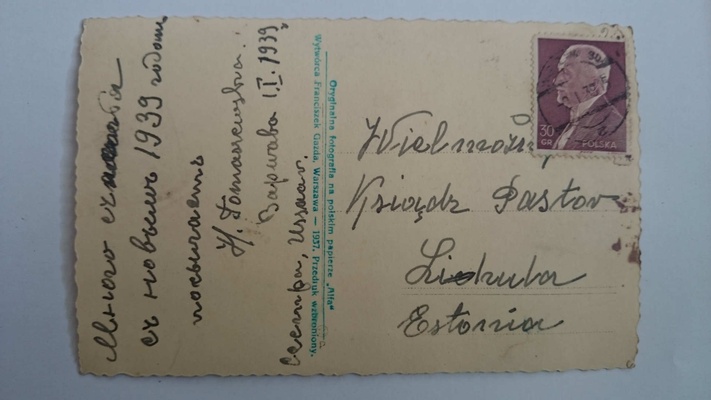 Много счастia
съ новымъ 1939 годом
посылаетъ
Н. Томашевска.
Варшава 1.I.1939
сестра,
Oryginalna fotografia na polskim papierze „Alfa”
Wytwórca Franciszek Gazda, Warszawa — 1937. Przedruk wzbroniony.
30
GR
POLSKA
Wielmożny
Ksiądz Pastor
Estonia